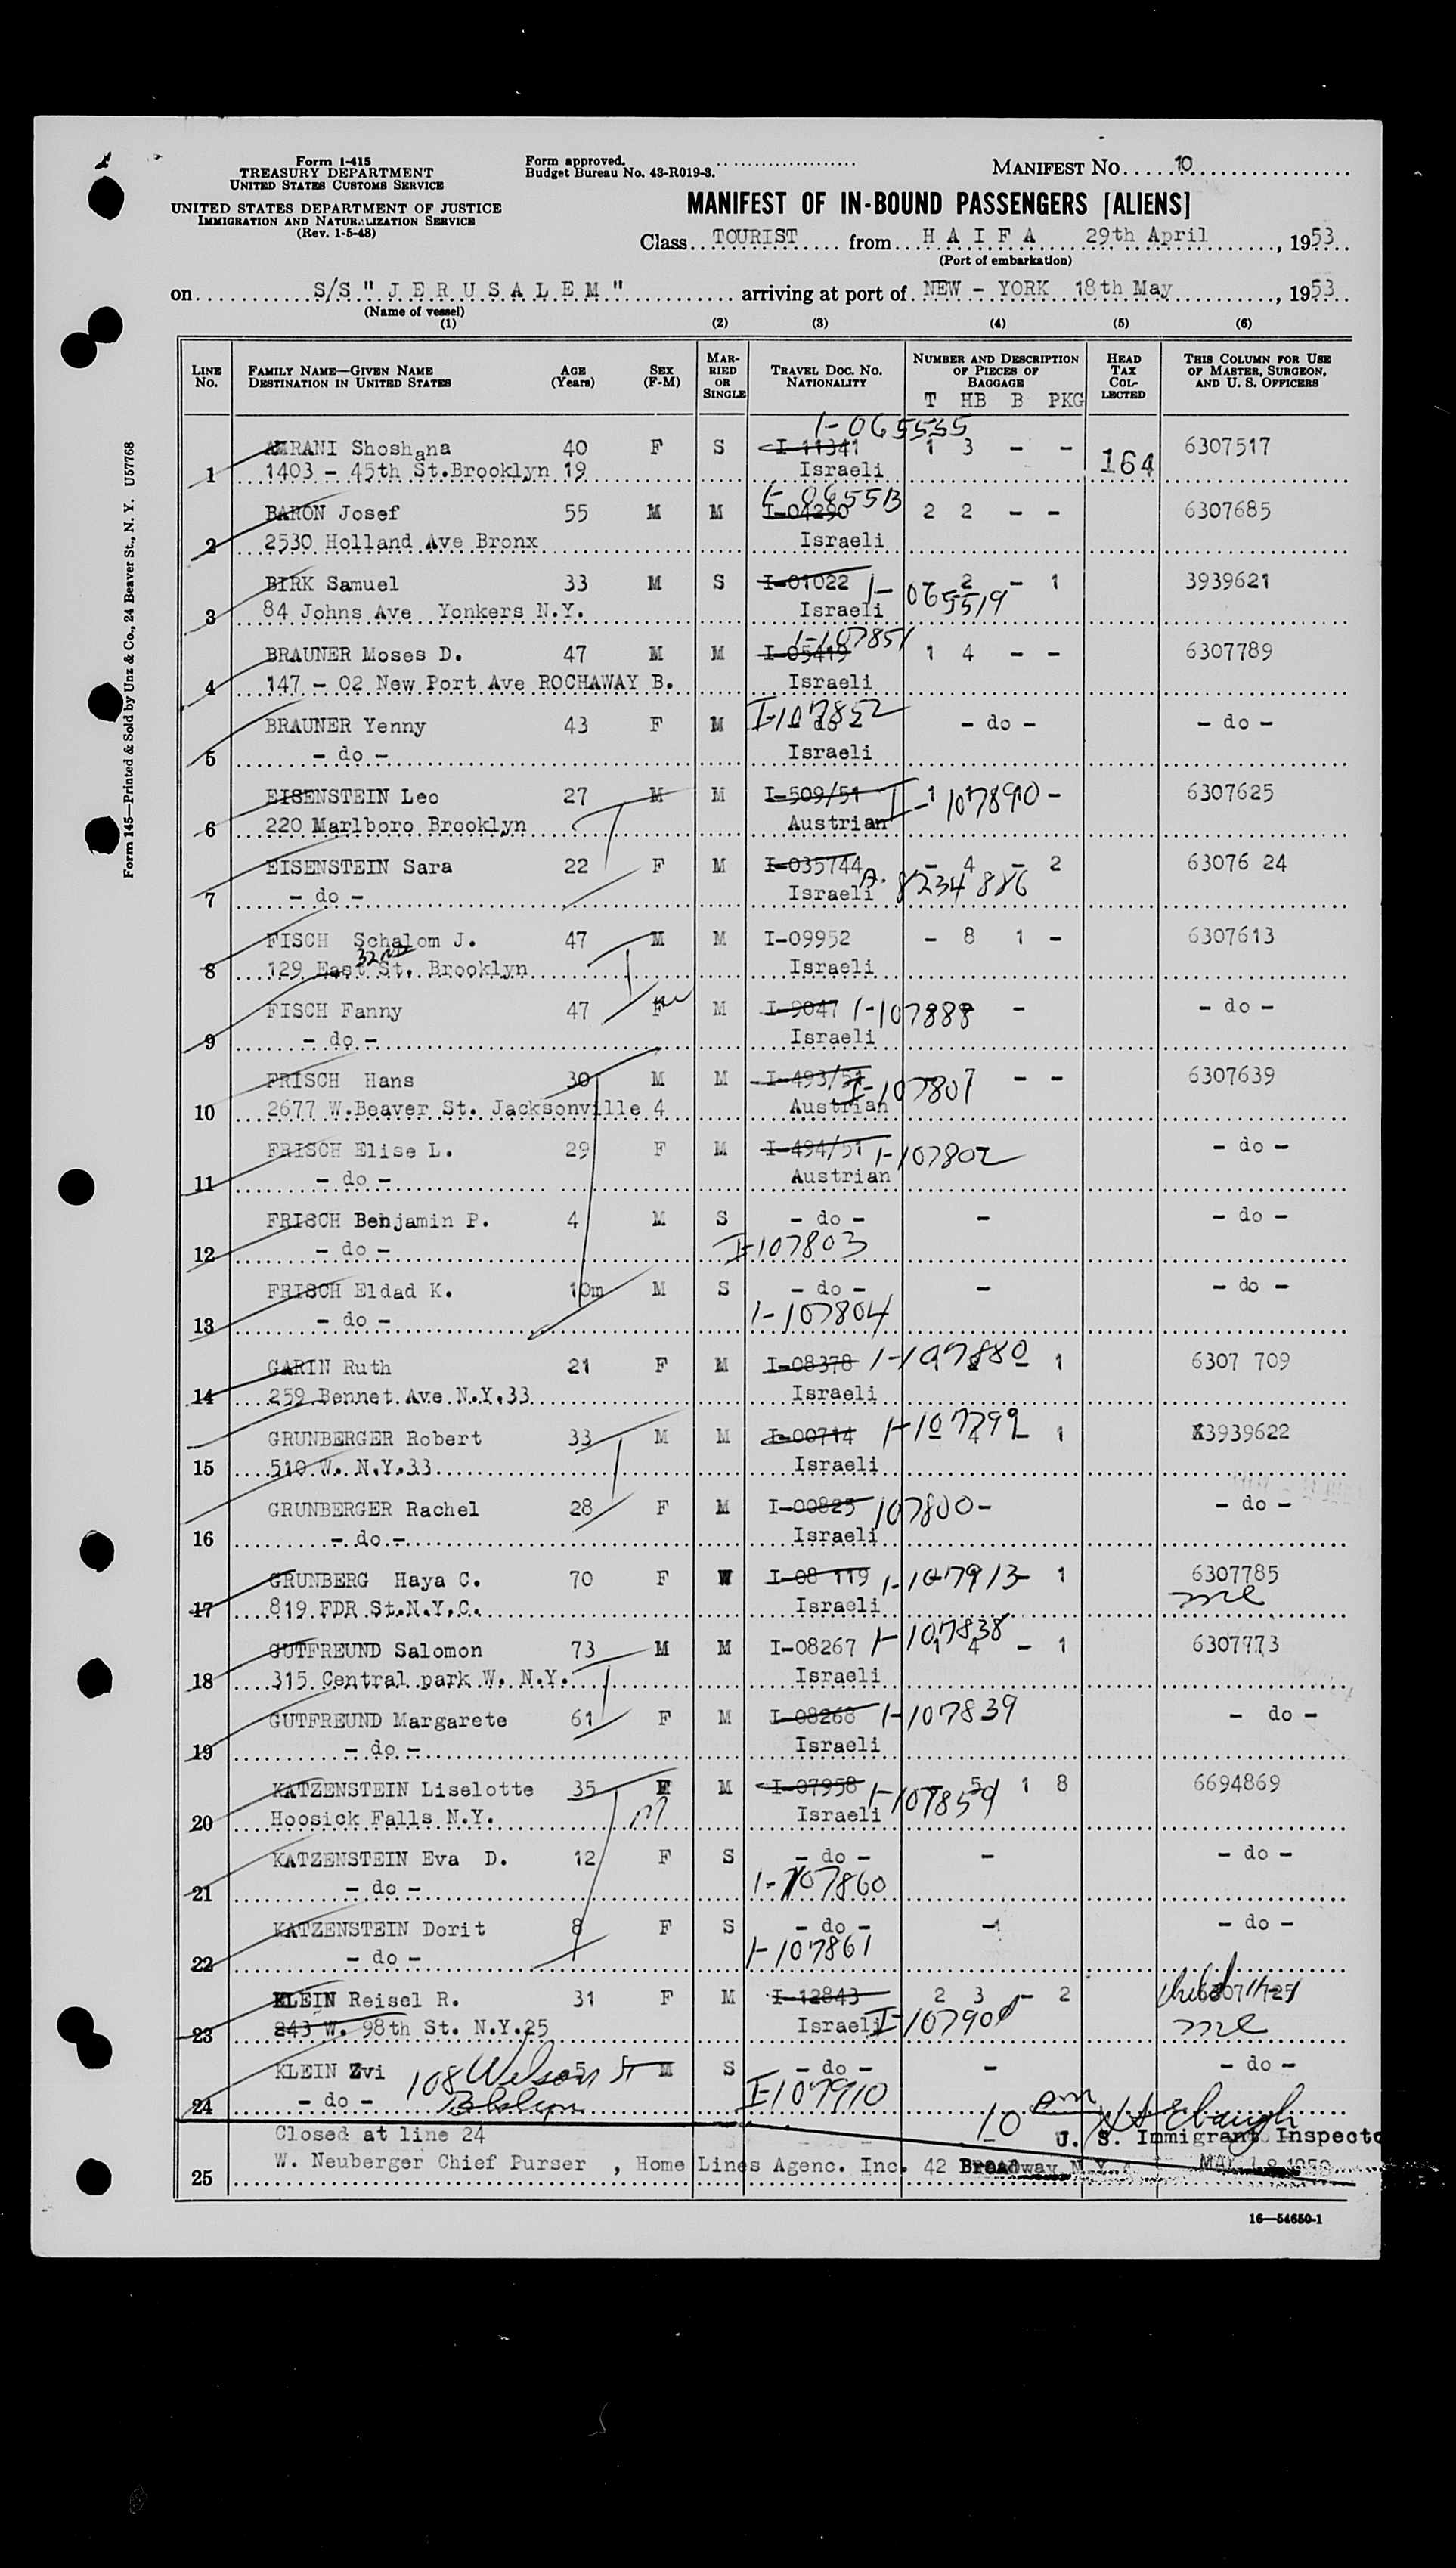 Form I-415
TREASURY DEPARTMENT
UNITED STATES CUSTOMS SERVICE
UNITED STATES DEPARTMENT OF JUSTICE
IMMIGRATION AND NATURALIZATION SERVICE
(Rev. 1-5-48)
Form approved.
Budget Bureau No. 43-R019-3.
MANIFEST NO. 10
MANIFEST OF IN-BOUND PASSENGERS [ALIENS]
Class TOURIST from H A I F A 29th April, 1953
(Port of embarkation)
on S/S " J E R U S A L E M " arriving at port of NEW - YORK 18th May, 1953
(Name of vessel)
(1) (2) (3) (4) (5) (6)
LINE NO. FAMILY NAME—GIVEN NAME DESTINATION IN UNITED STATES AGE (Years) SEX (F-M) MARRIED OR SINGLE TRAVEL DOC. NO. NATIONALITY NUMBER AND DESCRIPTION OF PIECES OF BAGGAGE HEAD TAX COLLECTED THIS COLUMN FOR USE OF MASTER, SURGEON, AND U. S. OFFICERS
T HB B PKG
1-065535
AMRANI Shoshana 40 F S I-11341 1 3 - - 6307517
1 1403 - 45th St.Brooklyn 19 Israeli 164
1-065513
BARON Josef 55 M M I-04290 2 2 - - 6307685
2 2530 Holland Ave Bronx Israeli
BIRK Samuel 33 M S I-01022 1-065519 - 2 - 1 3939621
3 84 Johns Ave Yonkers N.Y. Israeli
1-107851
BRAUNER Moses D. 47 M M I-05419 1 4 - - 6307789
4 147 - 02 New Port Ave ROCHAWAY B. Israeli
BRAUNER Yenny 43 F M I-107852 - do - - do -
5 - do - Israeli
EISENSTEIN Leo 27 M M I-509/51 I-107890 - 6307625
6 220 Marlboro Brooklyn Austrian
EISENSTEIN Sara 22 F M I-035744 - 4 - 2 63076 24
7 - do - Israeli A-8234886
FISCH Schalom J. 47 M M I-09952 - 8 1 - 6307613
32nd
8 129 East St. Brooklyn Israeli
FISCH Fanny 47 F M I-9047 1-107888 - - do -
9 - do - Israeli
FRISCH Hans 30 M M I-493/51 I-107801 7 - - 6307639
10 2677 W.Beaver St. Jacksonville 4 Austrian
FRISCH Elise L. 29 F M I-494/51 1-107802 - do -
11 - do - Austrian
FRISCH Benjamin P. 4 M S - do - - - do -
12 - do - I-107803
FRISCH Eldad K. 10m M S - do - - - do -
13 - do - 1-107804
GARIN Ruth 21 F M I-08378 1-107880 - 1 6307 709
14 259 Bennet Ave N.Y.33 Israeli
GRUNBERGER Robert 33 M M I-00714 1-107799 1 3939622
15 510 W. N.Y.33 Israeli
GRUNBERGER Rachel 28 F M I-00825 107800 - - do -
16 - do - Israeli
GRUNBERG Haya C. 70 F W I-08 119 1-107913 - 1 6307785
17 819 FDR St.N.Y.C. Israeli
GUTFREUND Salomon 73 M M I-08267 1-107838 1 4 - 1 6307773
18 315 Central park W. N.Y. Israeli
GUTFREUND Margarete 61 F M I-08268 1-107839 - do -
19 - do - Israeli
KATZENSTEIN Liselotte 35 F M I-07958 1-107859 - 5 1 8 6694869
20 Hoosick Falls N.Y. Israeli
KATZENSTEIN Eva D. 12 F S - do - - - do -
21 - do - 1-107860
KATZENSTEIN Dorit 8 F S - do - - - do -
22 - do - 1-107861
KLEIN Reisel R. 31 F M I-12843 2 3 - 2
23 243 W. 98th St. N.Y.25 Israeli
KLEIN Zvi 5 M S - do - - - do -
108 Wilson St
24 - do - I-107910
Closed at line 24 10 U. S. Immigrant Inspecto
25 W. Neuberger Chief Purser , Home Lines Agenc. Inc. 42 Broadway N.Y. MAY 18
16—54650-1
Form 145—Printed & Sold by Unz & Co., 24 Beaver St., N. Y. U57768